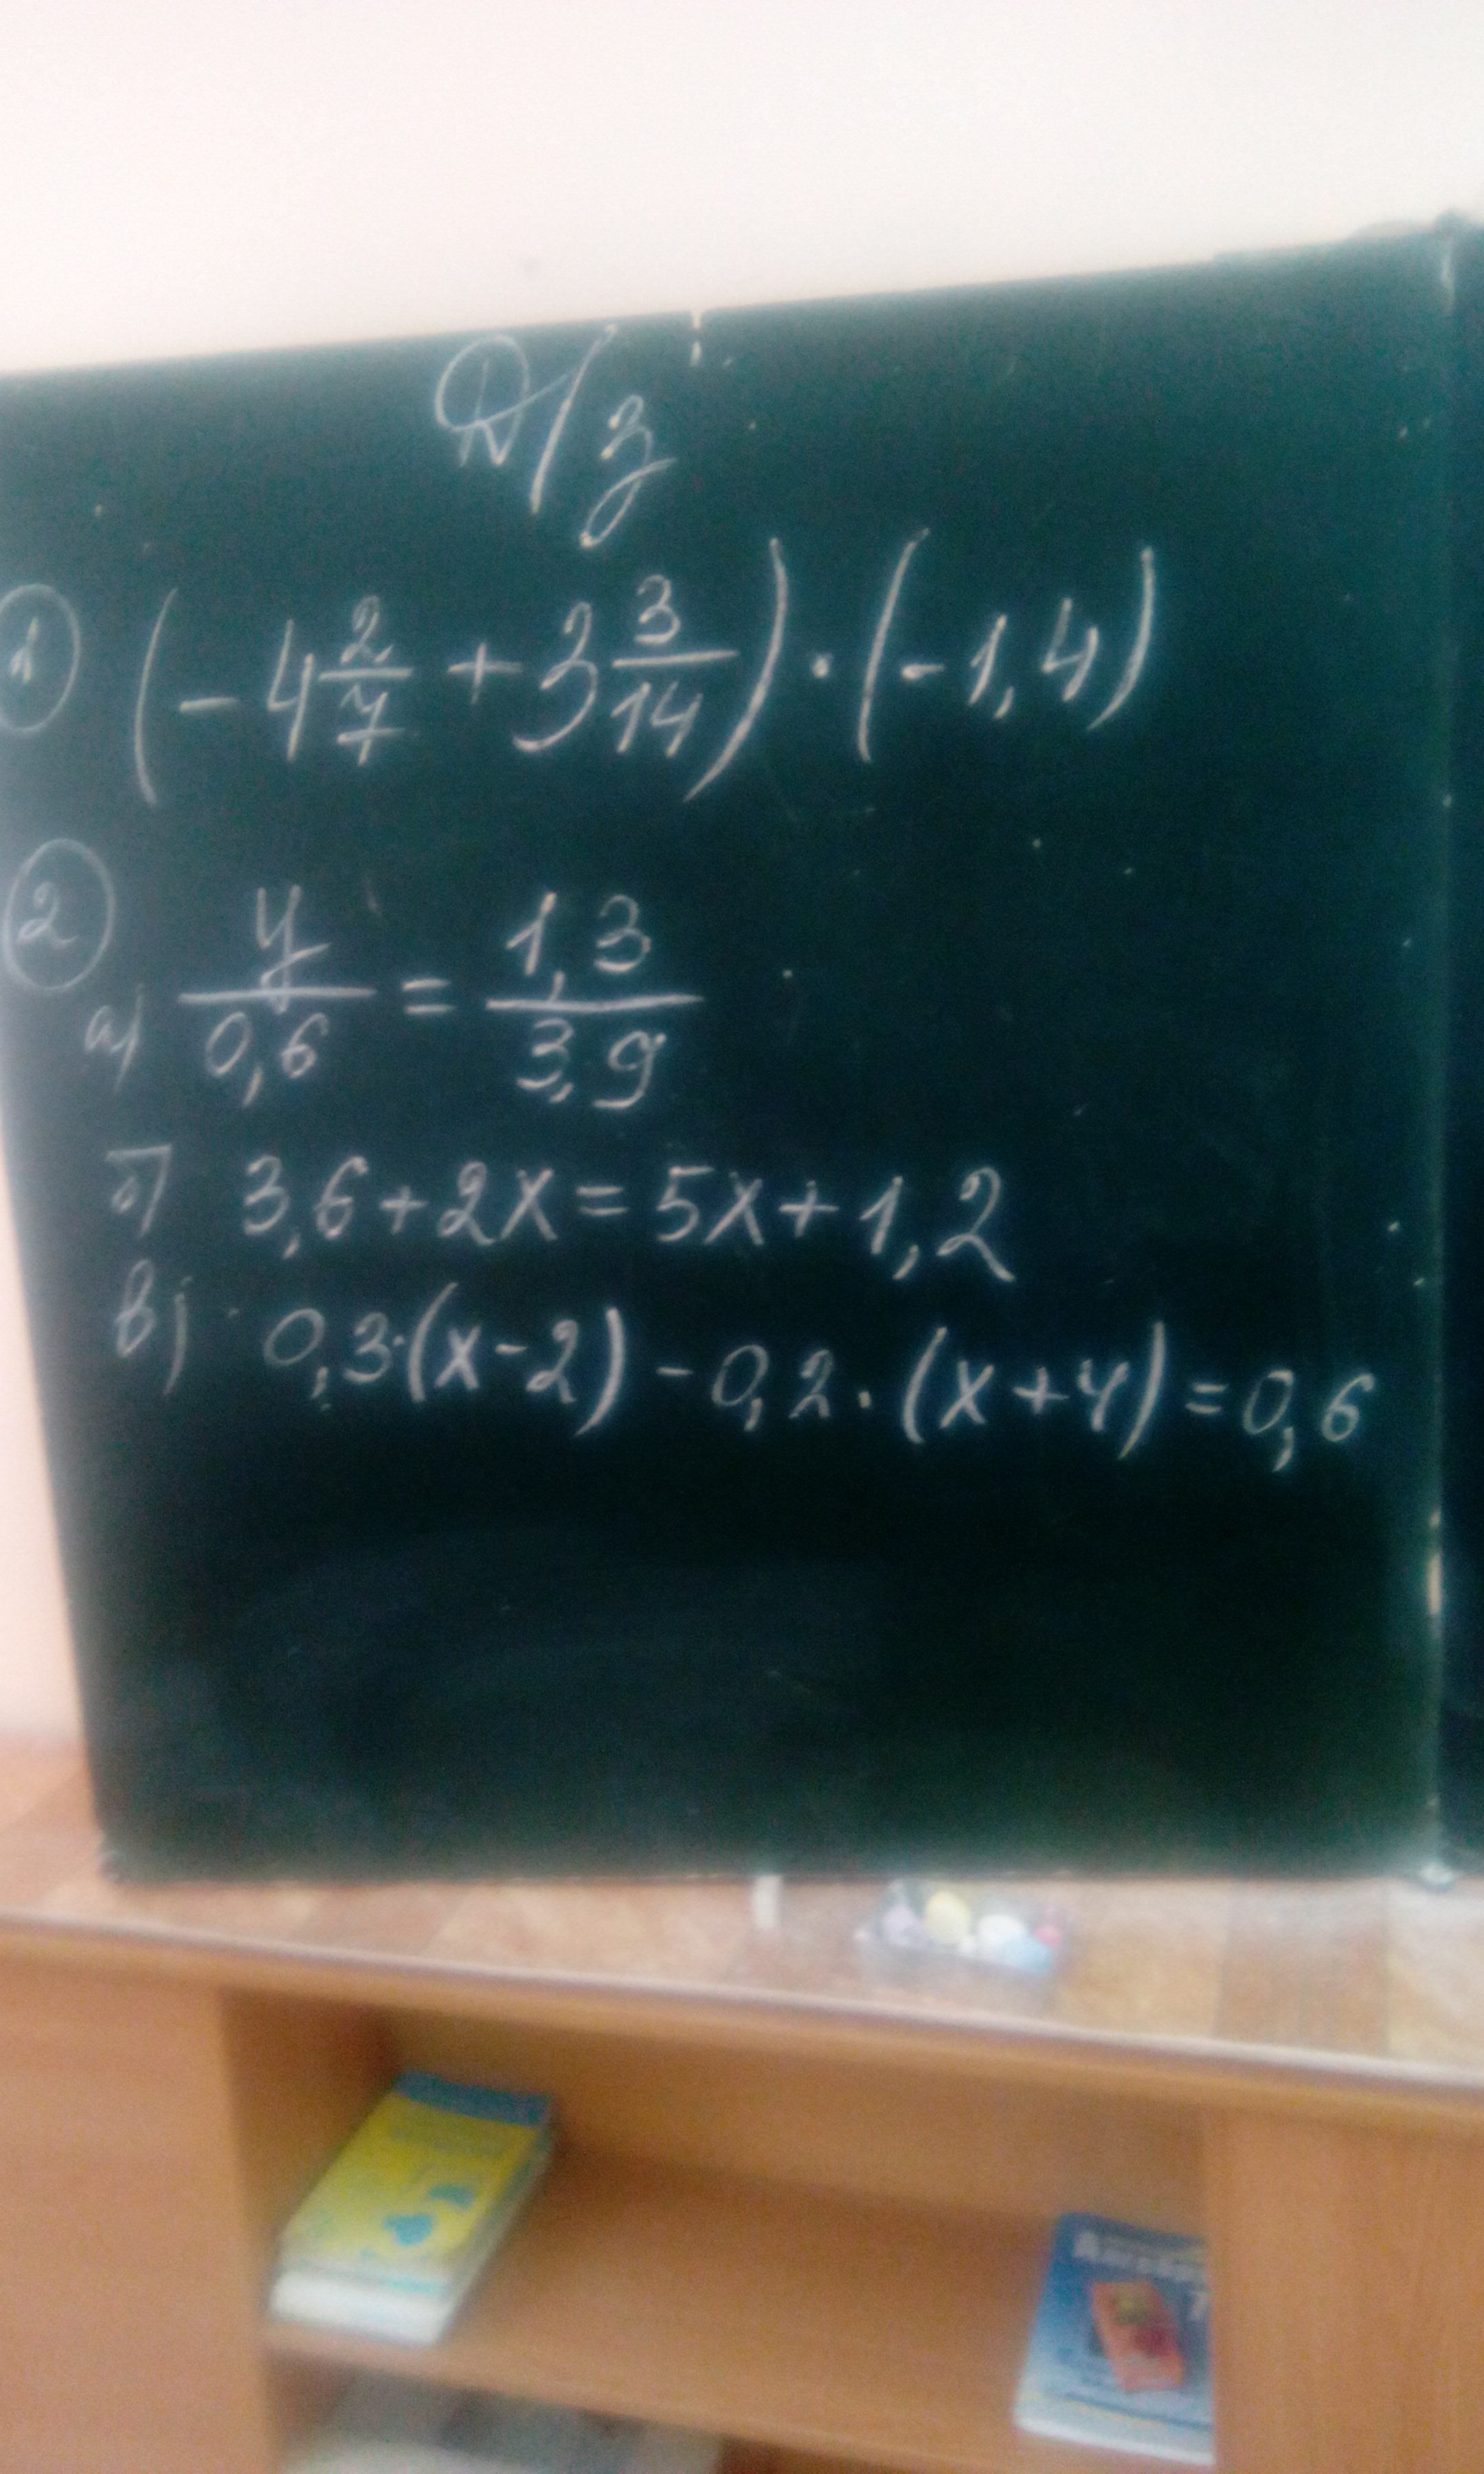 Д/з
1 (-4 2/7 + 3 3/14) · (-1,4)
2
а) y/0,6 = 1,3/3,9
б) 3,6+2x=5x+1,2
в) 0,3·(x-2)-0,2·(x+4)=0,6